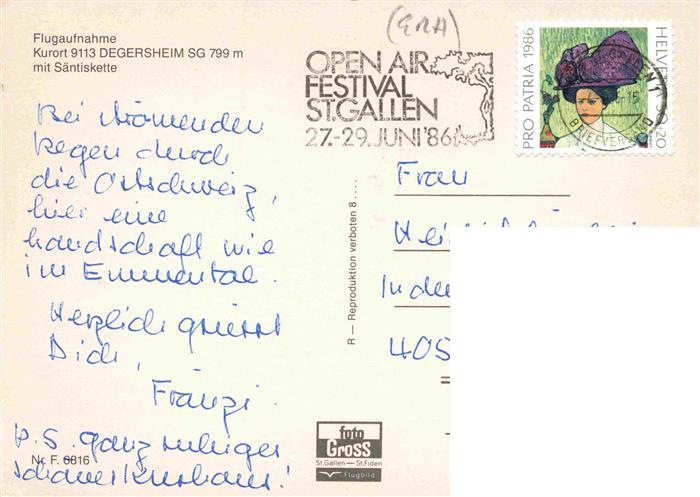 Flugaufnahme
Kurort 9113 DEGERSHEIM SG 799 m
mit Säntiskette
(GRA)
OPEN AIR
FESTIVAL
ST.GALLEN
27.-29. JUNI '86
PRO PATRIA 1986
HELVETIA
20
BRIEFVERSAND
Bei strömenden
Regen durch
die Ostschweiz,
hier eine
Landschaft wie
im Emmental.
Herzlich grüsst
Dich,
Fränzi.
P.S. ganz ruhiges
schönes Kurhaus!
Nr. F. 6816
R — Reproduktion verboten 8 . . . .
Frau
In de
405
foto
Gross
St.Gallen — St.Fiden
Flugbild